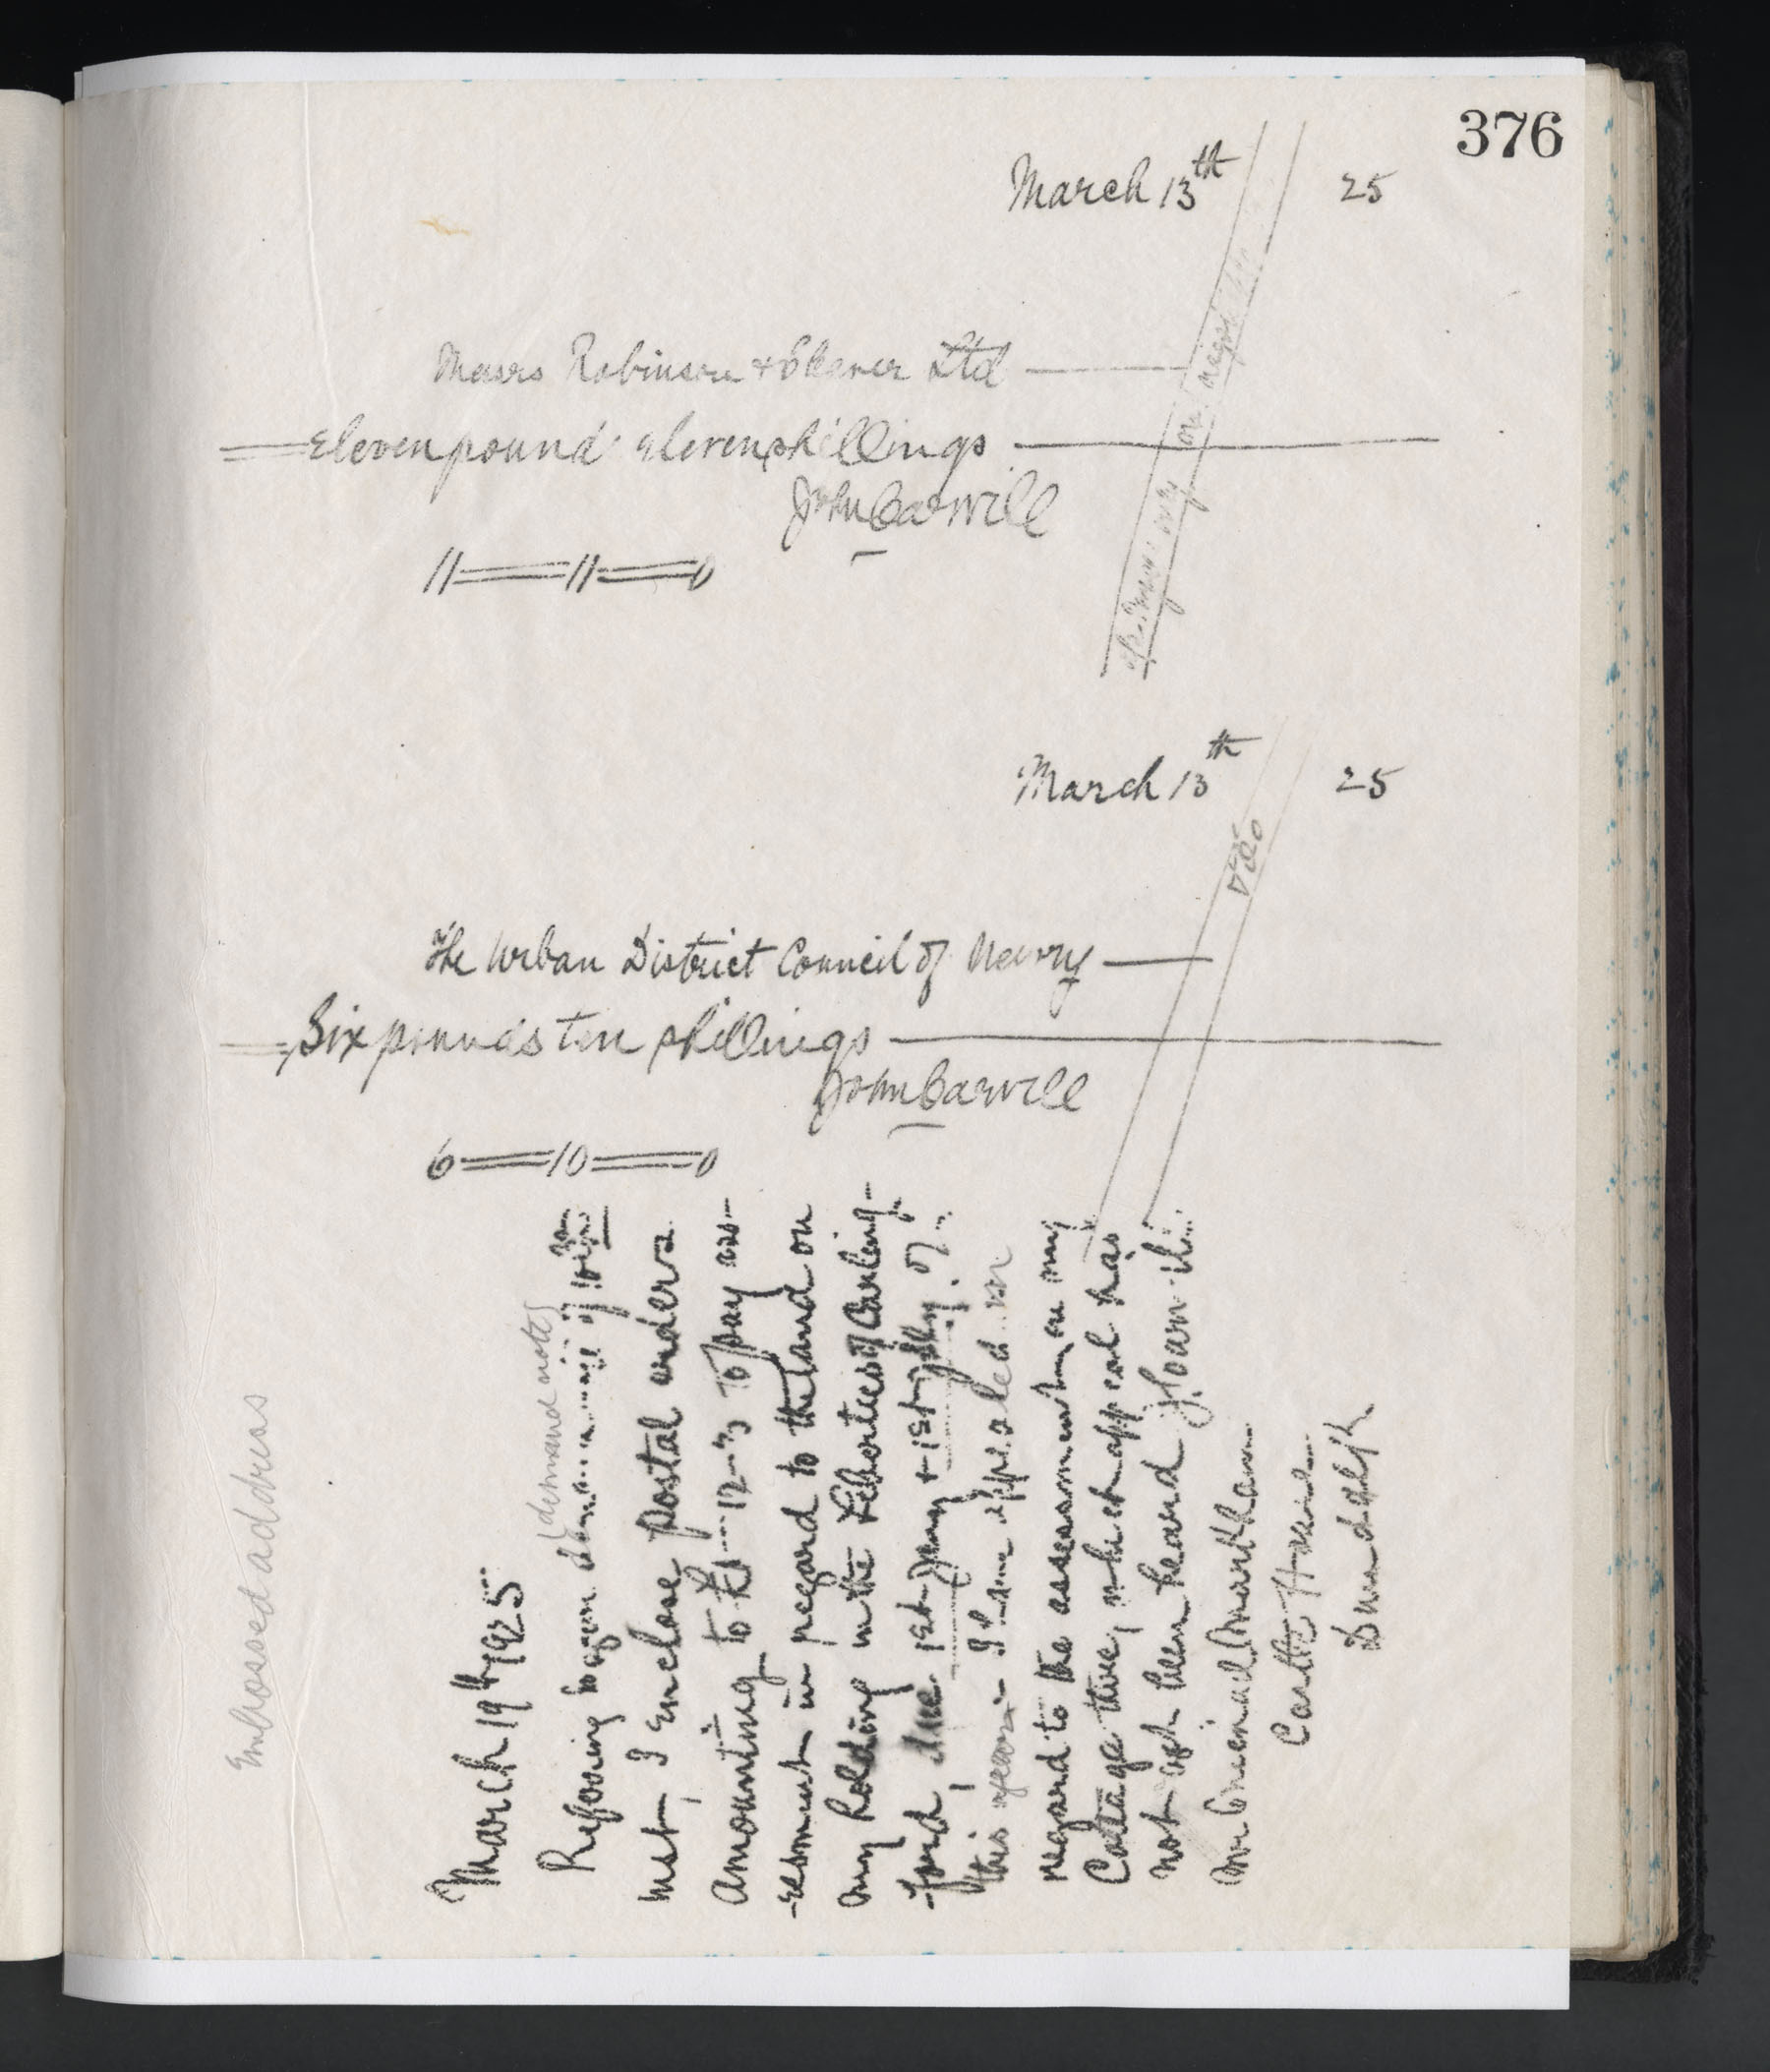 376
March 13th 25
Messrs Robinson & Cleaver Ltd
Eleven pound eleven shillings
John Carvill
11 = 11 = 0
March 13th 25
The Urban District Council of Newry
Six pounds ten shillings
John Carvill
6 = 10 = 0
Embossed address
March 19th 1925
(demand note)
Referring to your of 10th
inst, I enclose postal orders
amounting to £1-12-3 to pay as-
-sessment in regard to the land on
my holding in the Liberties of Carling-
-ford, due 1st Jany & 1st July of
this year. I have appealed in
regard to the assessment on my
Cottage there, which appeal has
not yet been heard
Dundalk